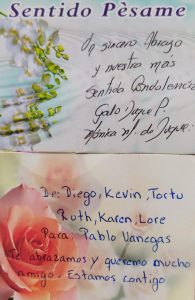 Sentido Pèsame
Un sincero Abrazo
y nuestra más
Sentida Condolencia
Duque P.
Mónica de Duque.
De: Diego, Kevin, Tortu
Ruth, Karen, Lore
Para: Pablo Vanegas
Te abrazamos y queremo mucho
amigo. Estamos contigo